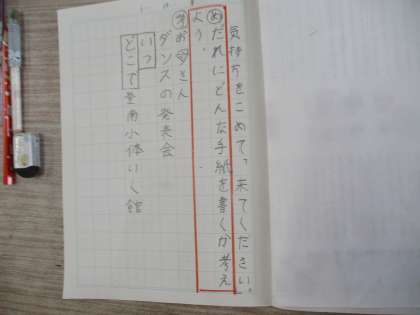 気持ちをこめて、来てください。
めだれにどんな手紙を書くか考え
よう。
お母さん
ダンスの発表会
いつ
どこで 南小体いく館